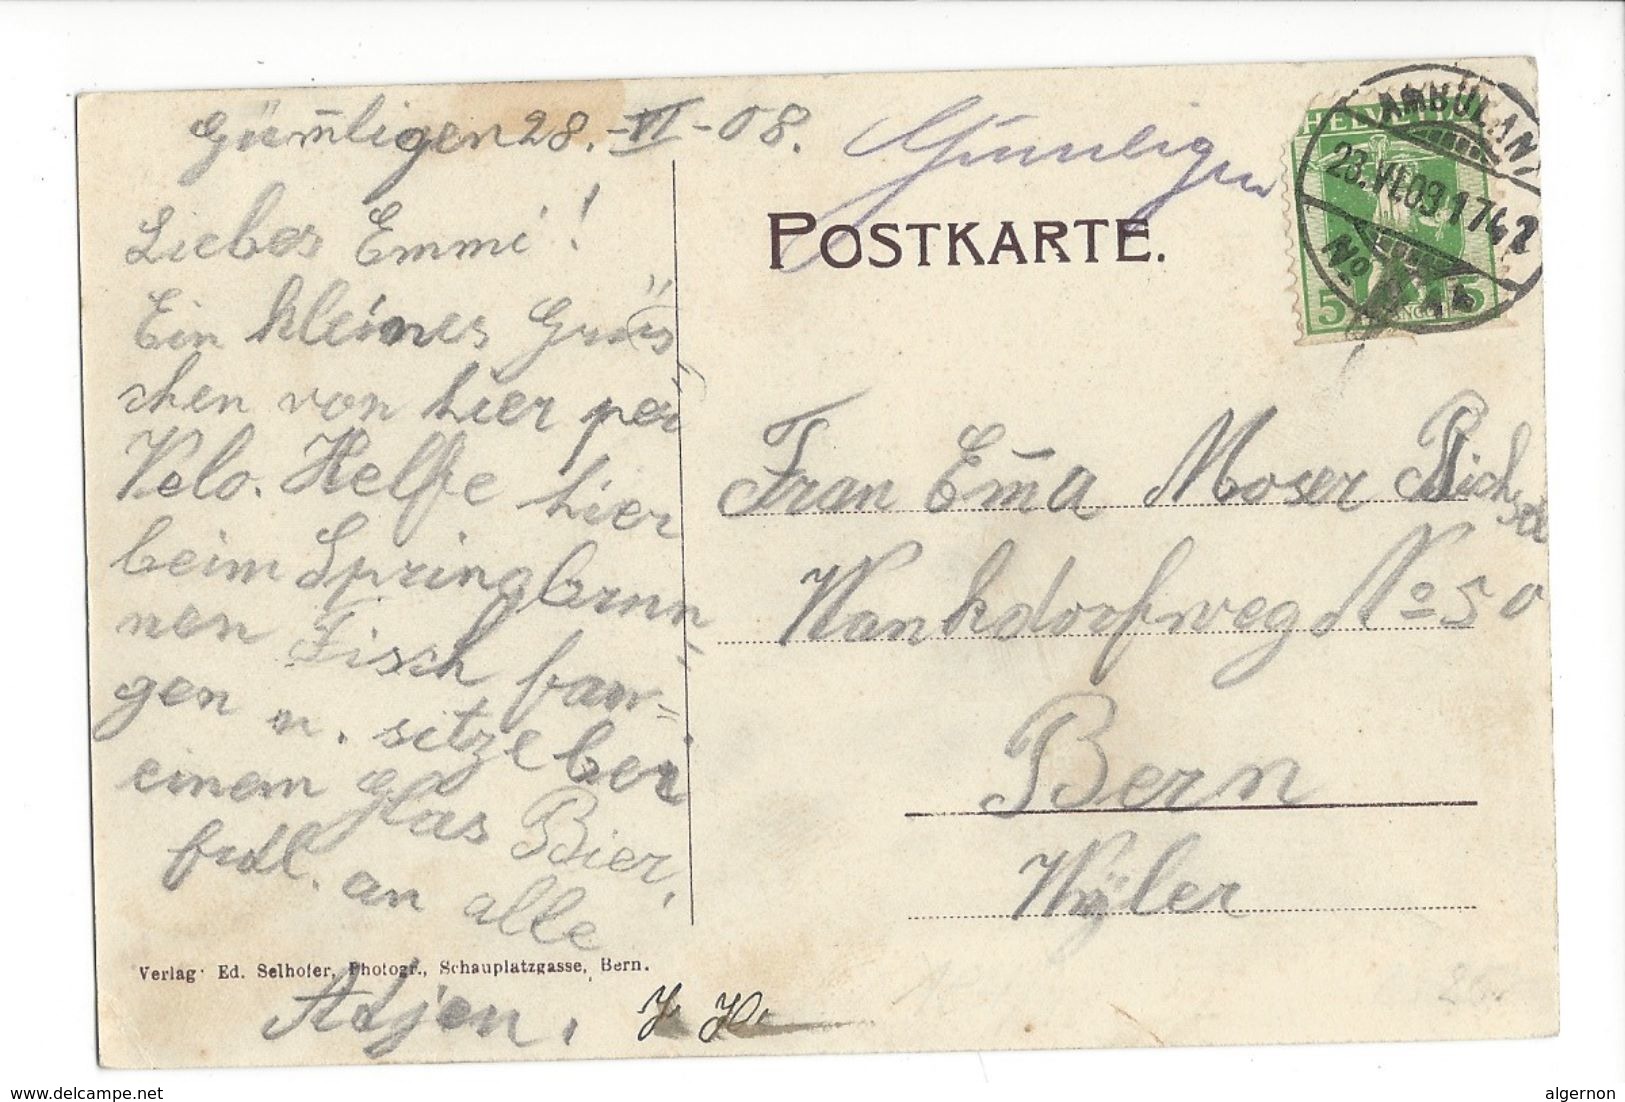 Gümligen 28.-VI-08.
Liebes Emmi!
Ein kleines Grüs
chen von hier per
Velo. Helfe hier
beim Springbrun-
nen Fisch fan=
gen u. sitze bei
einem Glas Bier.
frdl. an alle
Verlag Ed. Selhofer, Photogr., Schauplatzgasse, Bern.
Adjen.
Gümligen
POSTKARTE.
HELVETIA
5 5
AMBULANT
VI.08 1742
No
Frau Em̄a Moser Bichsel
Wankdorfweg No 50
Bern
Wyler
www.delcampe.net
algernon